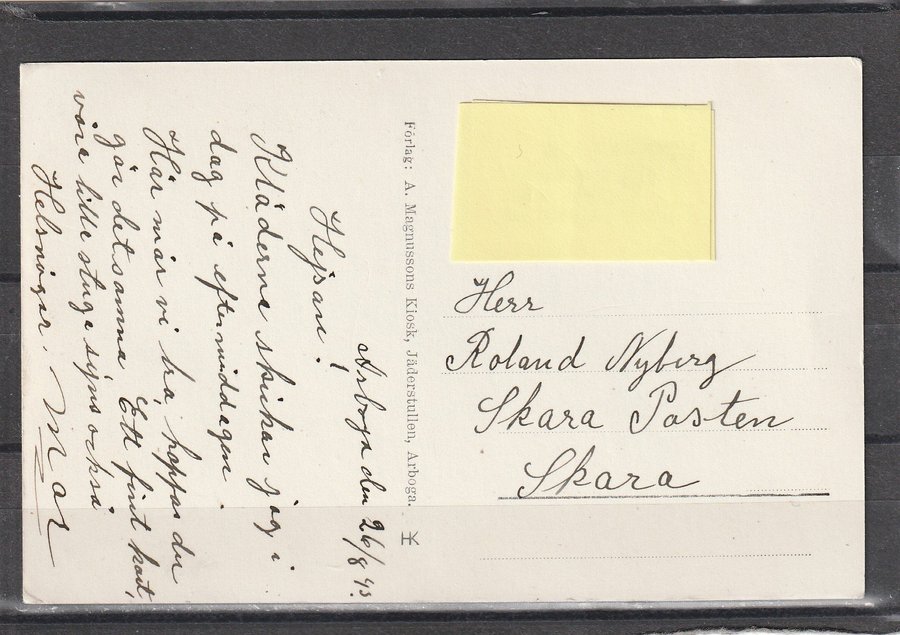 Arboga den 26/8 43.
Hejsan!
Kläderna skikar jag i
dag på eftermiddagen.
Här mår vi bra, hoppas du
gör detsamma. Ett fint kort,
våra lille stuga syns också
Helsningar. Mor
Förlag: A. Magnussons Kiosk, Jäderstullen, Arboga.
Herr
Roland Nyberg
Skara Posten
Skara